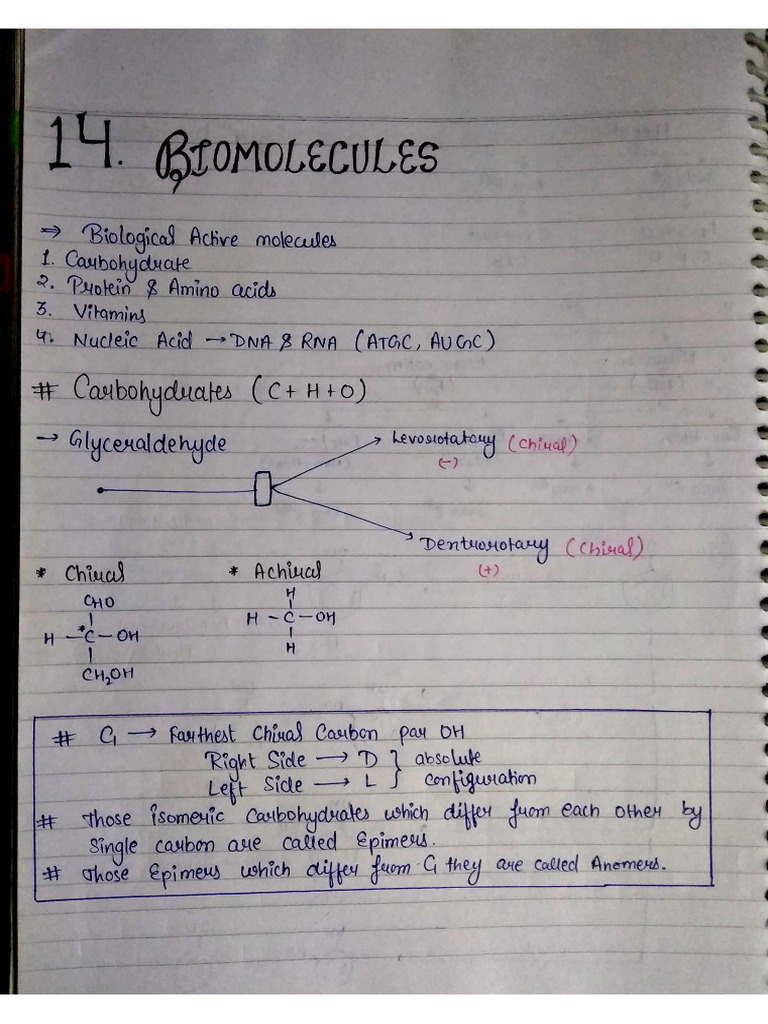 14. BIOMOLECULES
⇒ Biological Active molecules
1. Carbohydrate
2. Protein & Amino acids
3. Vitamins
4. Nucleic Acid → DNA & RNA (ATGC, AUGC)
# Carbohydrates (C + H + O)
→ Glyceraldehyde
Levorotatary (Chiral)
(-)
Dentrorotary (Chiral)
(+)
* Chiral * Achiral
CHO
H - *C - OH
CH₂OH
H
H - C - OH
H
# C₁ → Farthest Chiral Carbon par OH
Right Side → D } absolute
Left Side → L } configuration
# Those isomeric carbohydrates which differ from each other by
Single carbon are called Epimers.
# Those Epimers which differ from C₁ they are called Anomers.